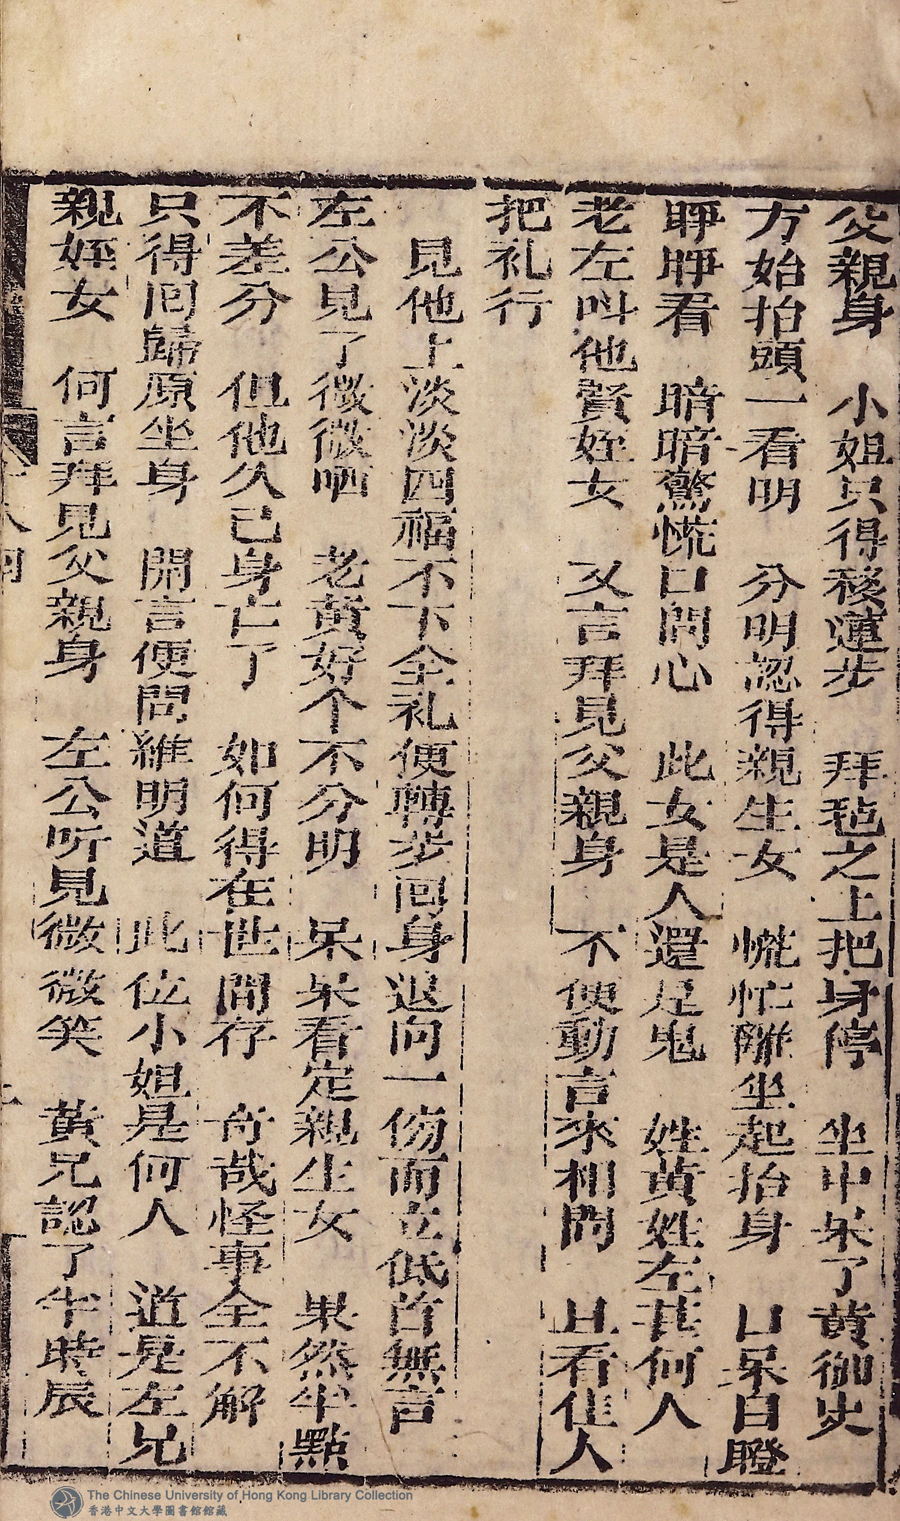 父親身　小姐只得移蓮步　拜毡之上把身停　坐中呆了黄御史
方始抬頭一看明　分明認得親生女　慌忙離坐起抬身　口呆目瞪
睜睜看　暗暗驚慌口問心　此女是人還是鬼　姓黄姓左甚何人
老左叫他賢姪女　又言拜見父親身　不便動言來相問　且看佳人
把礼行
見他上淡淡四福不下全礼便轉步囘身退向一傍而立低首無言
左公見了微微哂　老黄好个不分明　呆呆看定親生女　果然半點
不差分　但他久已身亡了　如何得在世間存　奇哉怪事全不解
只得囘歸原坐身　開言便問維明道　此位小姐是何人　道是左兄
親姪女　何言拜見父親身　左公听見微微笑　黄兄認了半時辰
The Chinese University of Hong Kong Library Collection
香港中文大學圖書館館藏